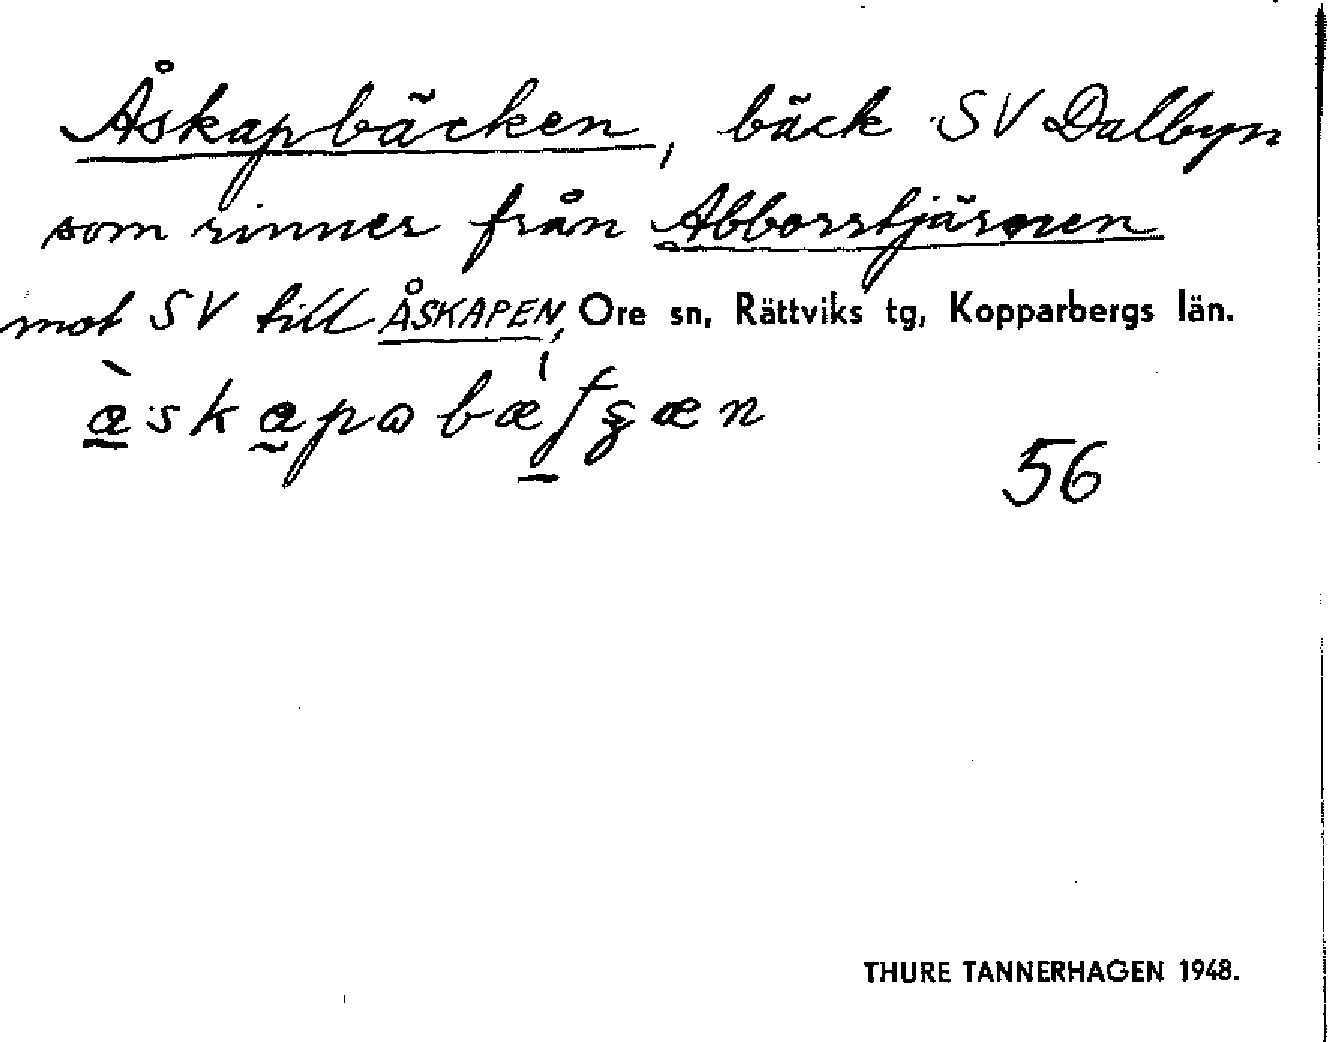 Åskapbäcken, bäck SV Dalbyn
som rinner från Abborrtjärnen
mot SV till ÅSKAPEN, Ore sn, Rättviks tg, Kopparbergs län.
56
THURE TANNERHAGEN 1948.